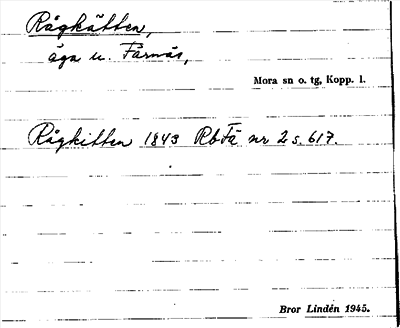 Rågkätten,
äga u. Färnäs,
Mora sn o. tg, Kopp. l.
Rågkitten 1843 RbFä nr 2 s. 617.
Bror Lindén 1945.